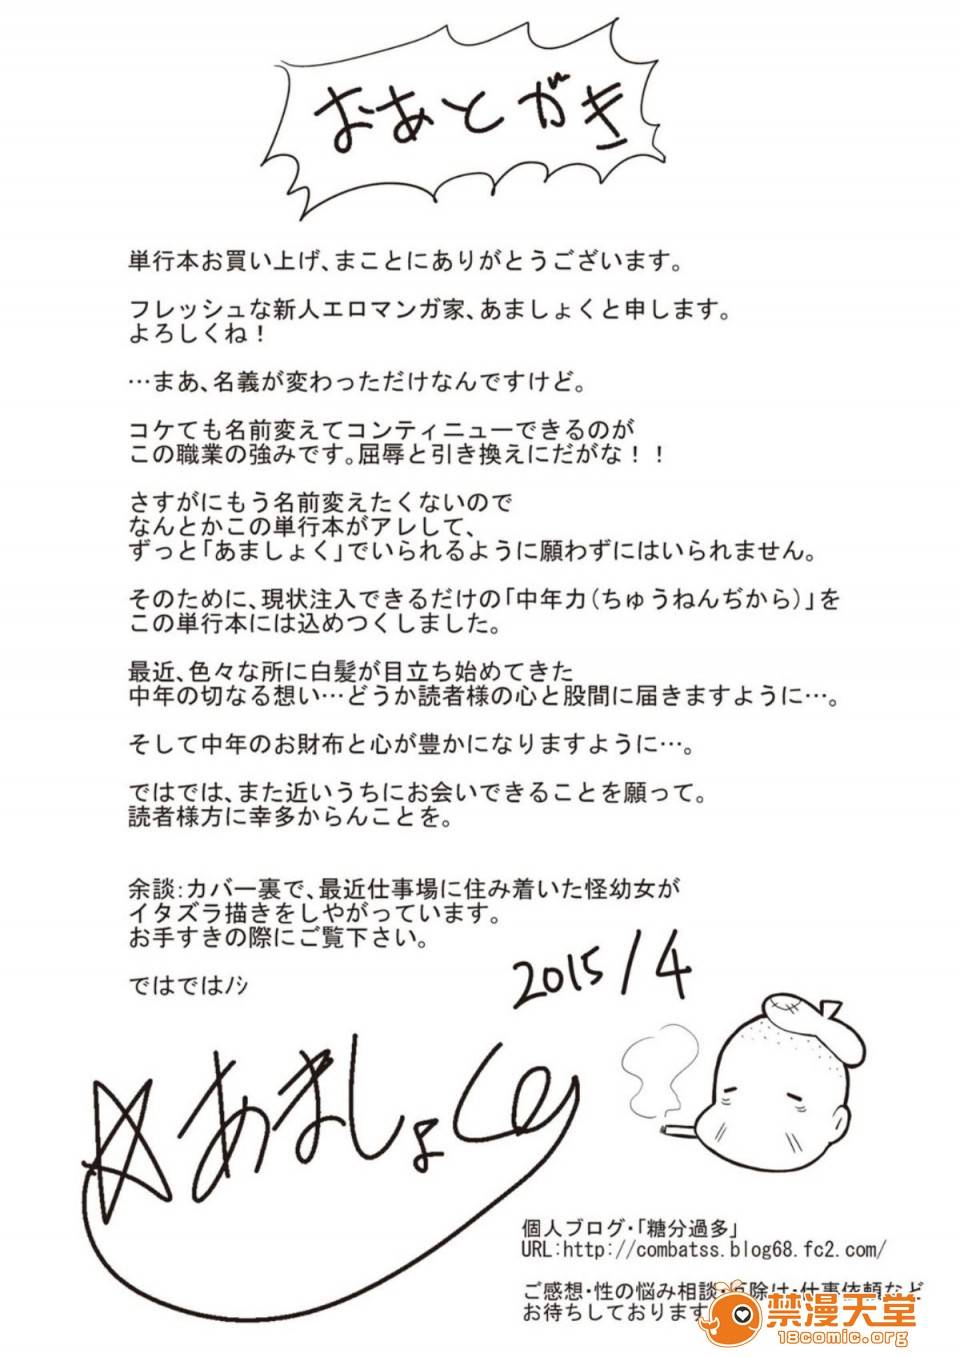 おあとがき
単行本お買い上げ、まことにありがとうございます。
フレッシュな新人エロマンガ家、あましょくと申します。
よろしくね！
…まあ、名義が変わっただけなんですけど。
コケても名前変えてコンティニューできるのが
この職業の強みです。屈辱と引き換えにだがな！！
さすがにもう名前変えたくないので
なんとかこの単行本がアレして、
ずっと「あましょく」でいられるように願わずにはいられません。
そのために、現状注入できるだけの「中年力(ちゅうねんぢから)」を
この単行本には込めつくしました。
最近、色々な所に白髪が目立ち始めてきた
中年の切なる想い…どうか読者様の心と股間に届きますように…。
そして中年のお財布と心が豊かになりますように…。
ではでは、また近いうちにお会いできることを願って。
読者様方に幸多からんことを。
余談:カバー裏で、最近仕事場に住み着いた怪幼女が
イタズラ描きをしやがっています。
お手すきの際にご覧下さい。
ではではﾉｼ
2015/4
☆あましょく
個人ブログ・「糖分過多」
URL:http://combatss.blog68.fc2.com/
ご感想・性の悩み相談・厄除け・仕事依頼など
お待ちしております
禁漫天堂
18comic.org